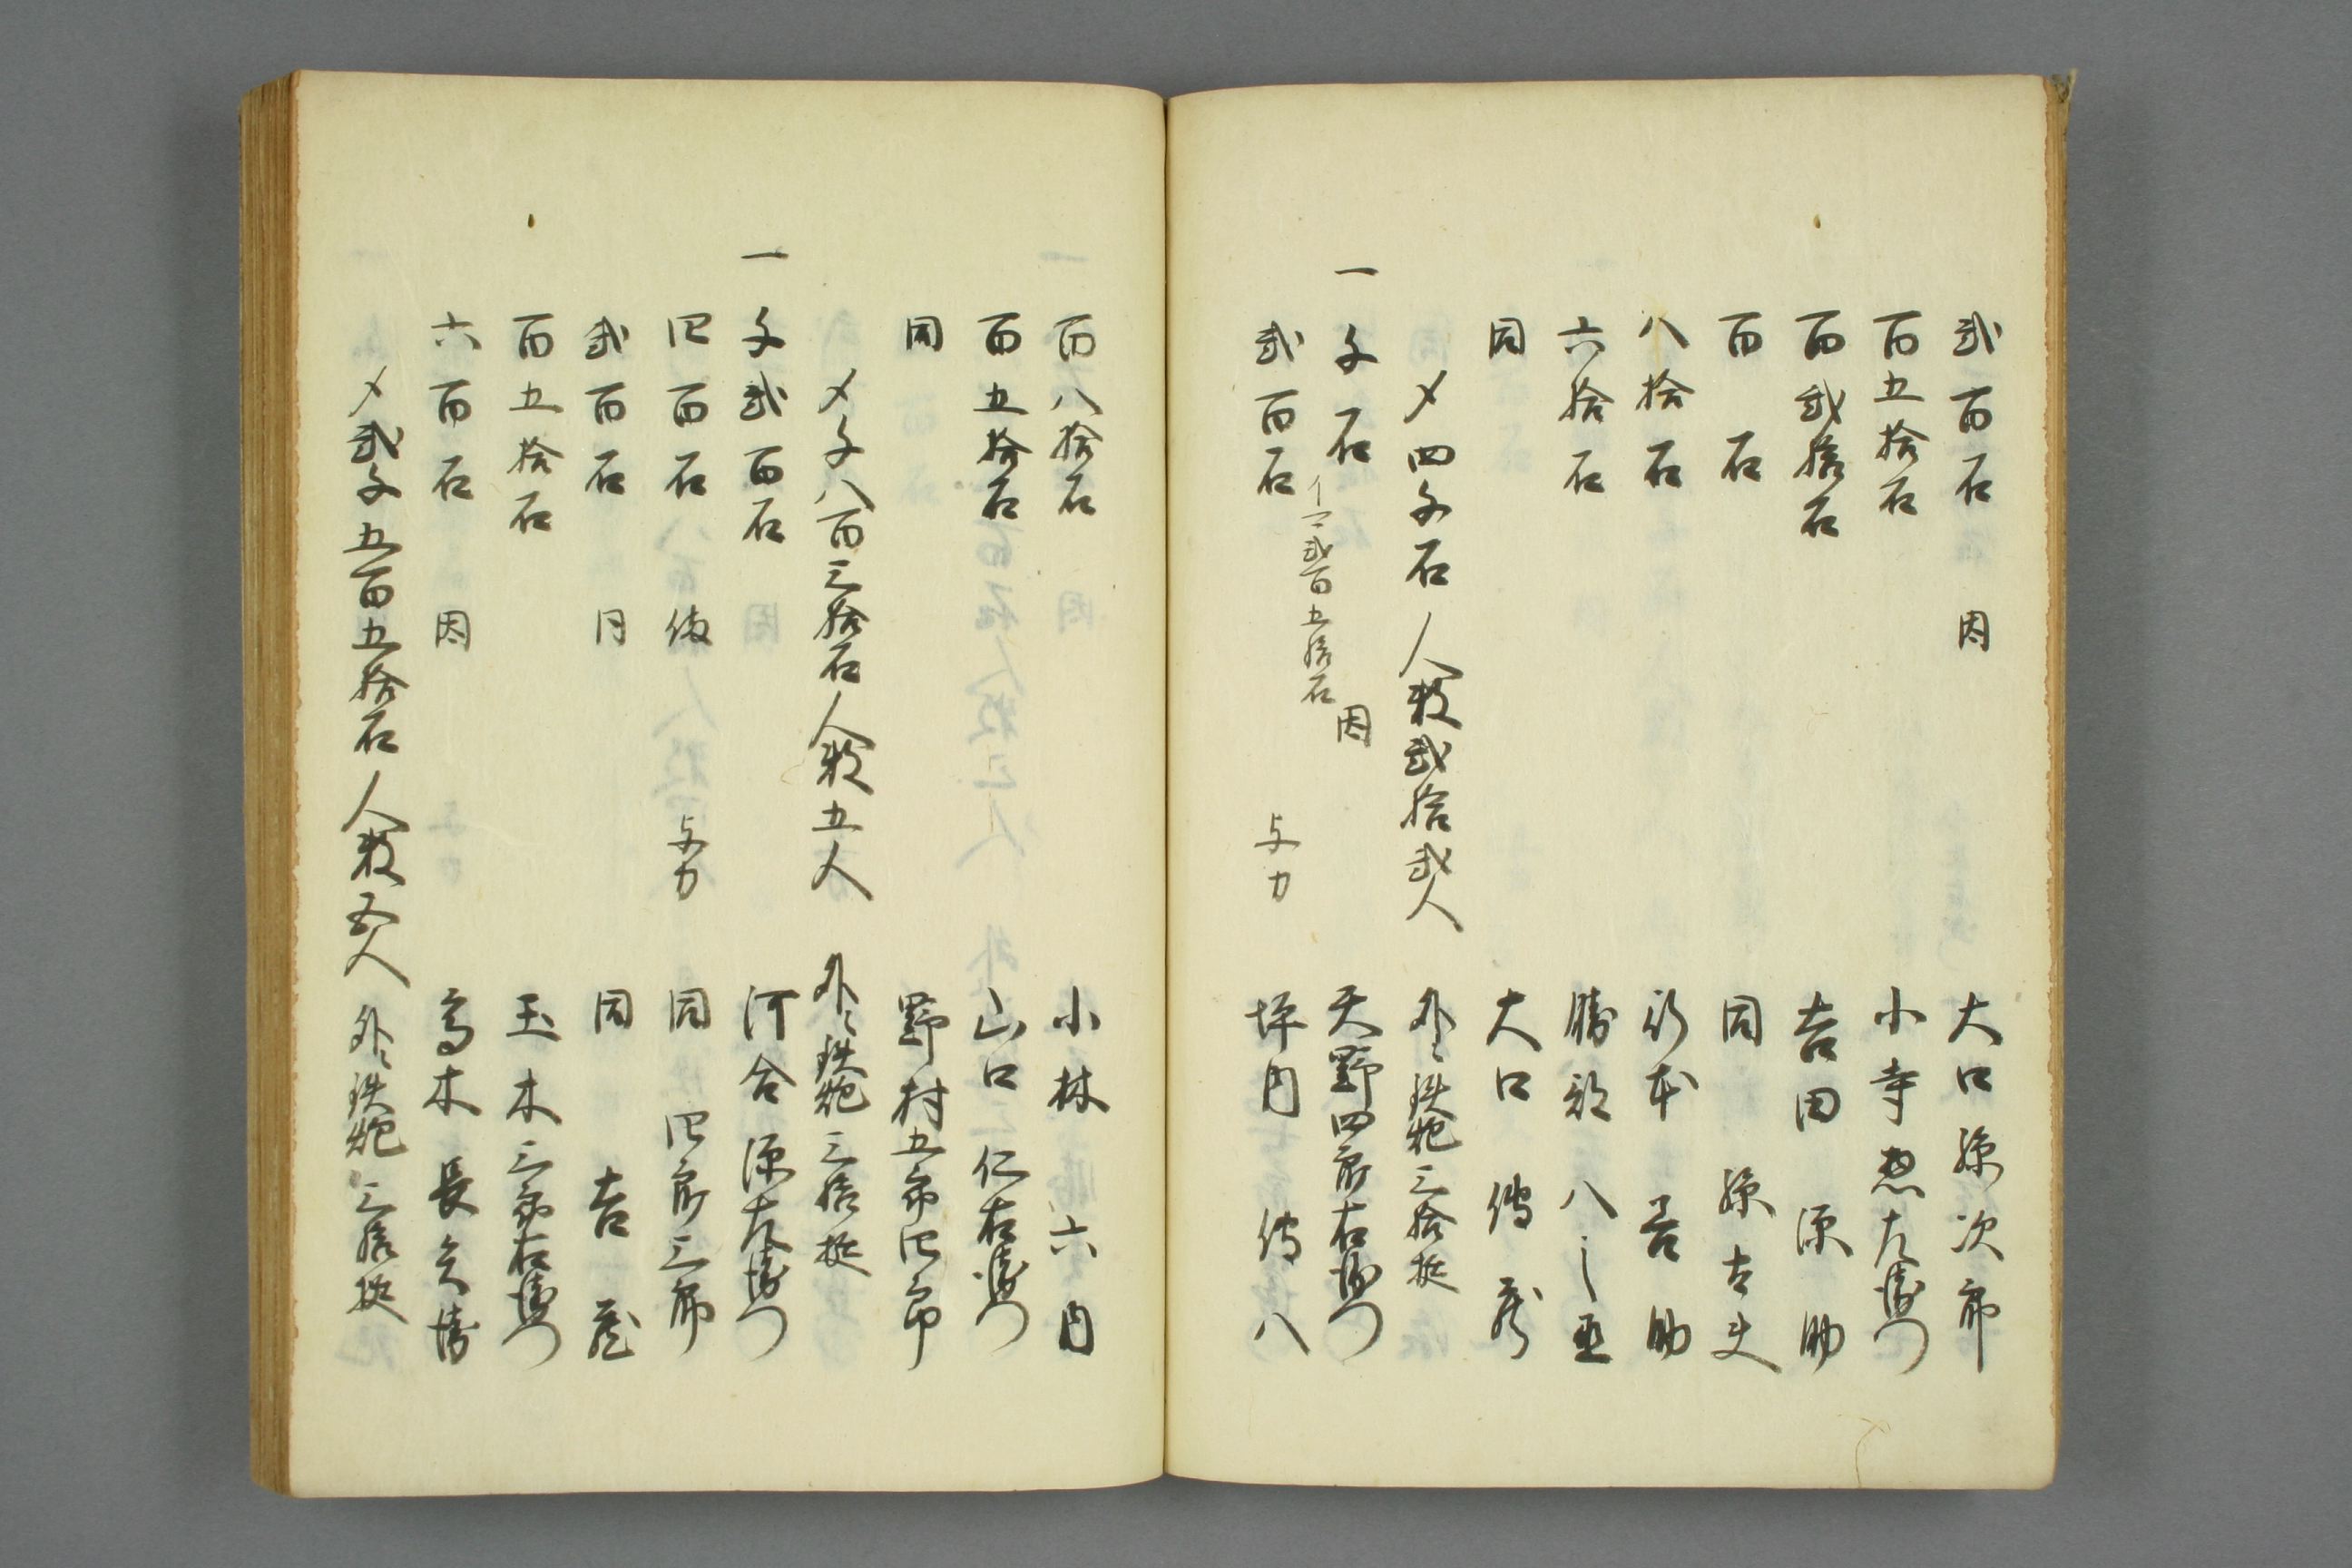 弐百石 因 大口孫次郎
百五拾石 小寺惣左衛門
百弐拾石 吉田源助
百石 同孫太夫
八拾石 杉本吾助
六拾石 勝部八之丞
同 大口傳蔵
〆四千石 人数弐拾弐人 外ニ鉄炮三拾挺
一 千石 因 天野四郎右衛門
イニ弐百五拾石
弐百石 与力 坪内傳八
百八拾石 小林六内
百五拾石 山口仁右衛門
同 野村五郎四郎
〆千八百三拾石 人数五人 外ニ鉄炮三拾挺
一 千弐百石 河合源左衛門
四百石 備 与力 同四郎三郎
弐百石 同 同吉蔵
百五拾石 玉木三郎右衛門
六百石 因 高木長兵衛
〆弐千五百五拾石 人数五人 外ニ鉄炮三拾挺